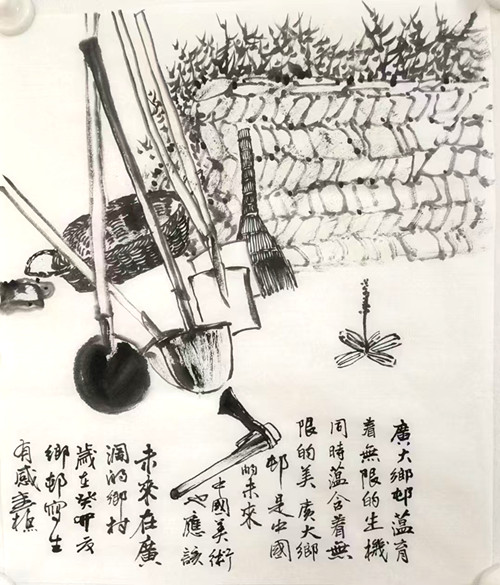 廣大鄉邨蕴育
着無限的生機
同時蕴含着無
限的美廣大鄉
邨是中國
的未來
中國美術
也應該
未来在廣
濶的鄉村
歲在癸卯
鄉邨寫生
有感